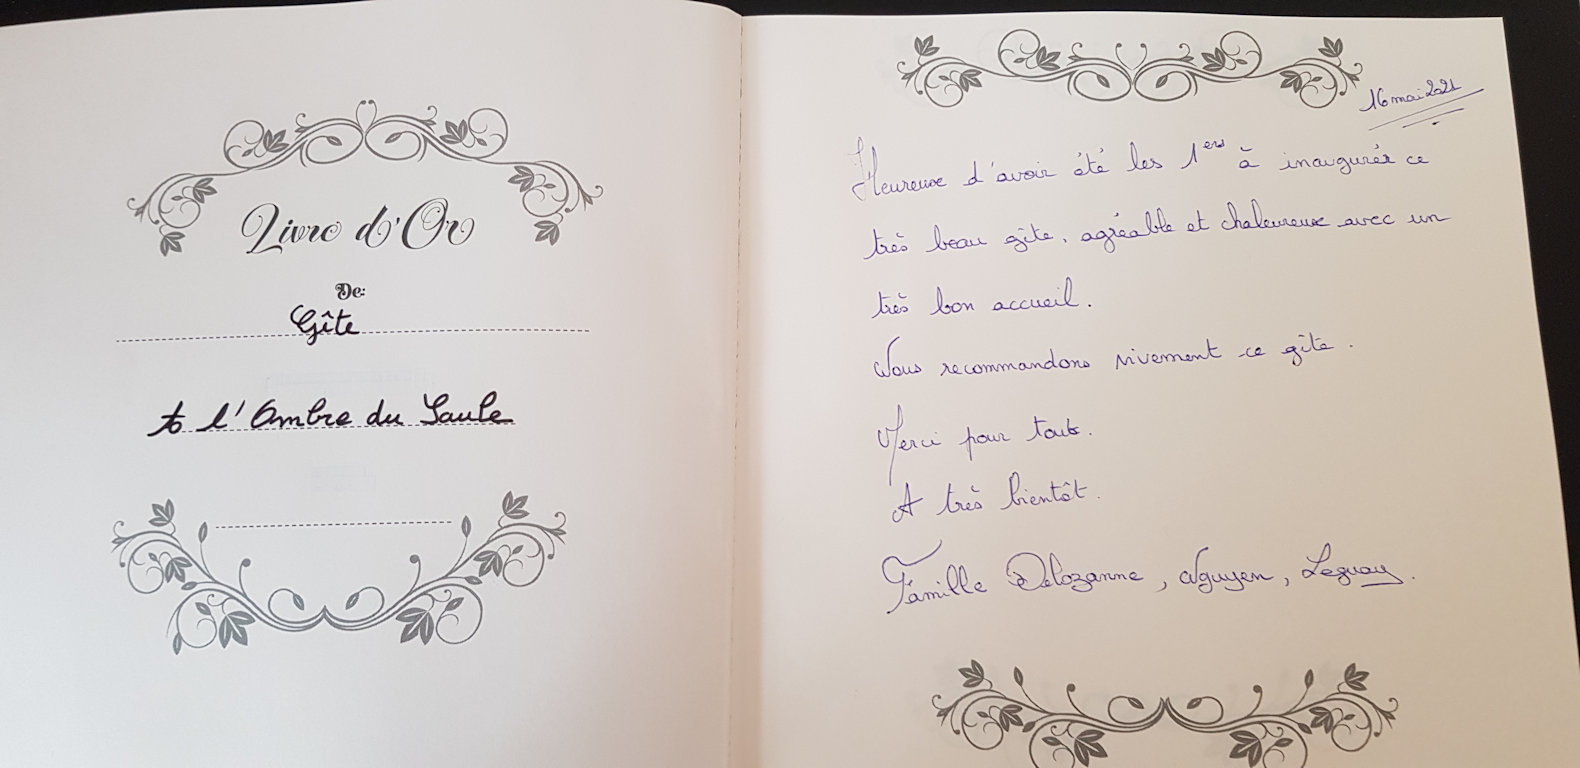 Livre d'Or
De:
Gîte
à l'Ombre du Saule
16 mai 2021
Heureux d'avoir été les 1ers à inaugurér ce
très beau gîte, agréable et chaleureux avec un
très bon accueil.
Nous recommandons vivement ce gîte.
Merci pour tout.
A très bientôt.
Famille Delozanne, Nguyen, Leguay.